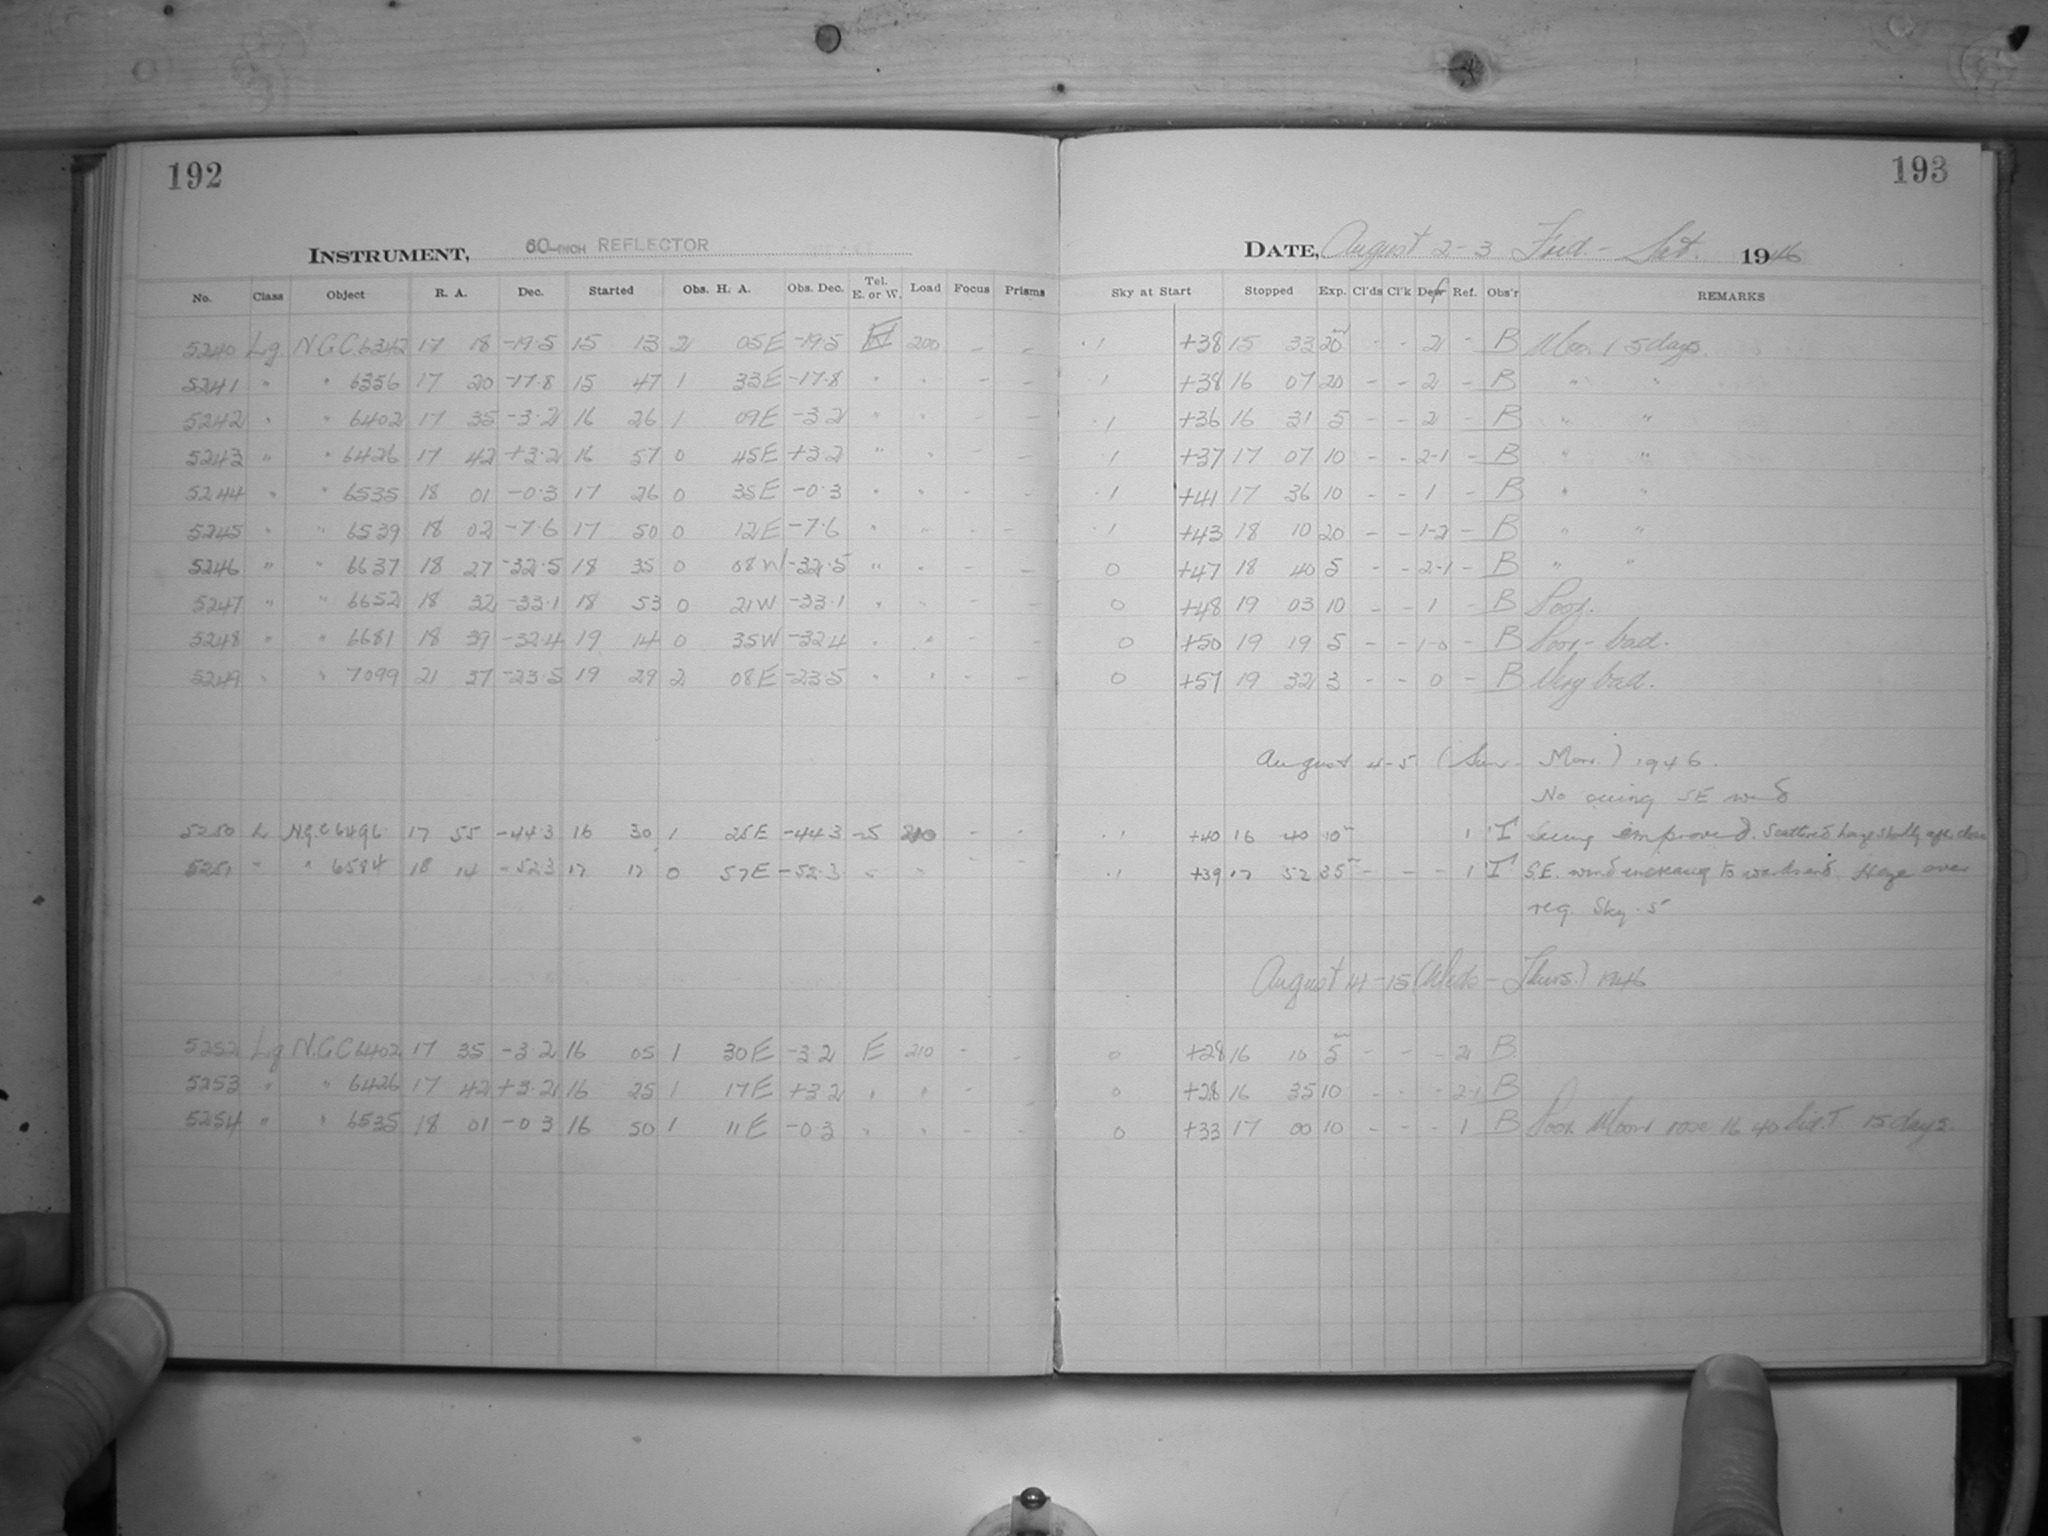 192 193
INSTRUMENT, 60-INCH REFLECTOR DATE, August 2-3 Frid. - Sat. 1946
No. Class Object R. A. Dec. Started Obs. H. A. Obs. Dec. Tel. E. or W. Load Focus Prisms Sky at Start Stopped Exp. Cl'ds Cl'k Def Ref. Obs'r REMARKS
5240 Lg N.G.C. 6342 17 18 -19.5 15 13 2 05E -19.5 200 - - .1 +38 15 33 20m - - 2 - B Moon 5 days.
5241 " " 6356 17 20 -17.8 15 47 1 33E -17.8 " " - - .1 +38 16 07 20 - - 2 - B " "
5242 " " 6402 17 35 -3.2 16 26 1 09E -3.2 " " - - .1 +36 16 31 5 - - 2 - B " "
5243 " " 6426 17 42 +3.2 16 57 0 45E +3.2 " " - - .1 +37 17 07 10 - - 2-1 - B " "
5244 " " 6535 18 01 -0.3 17 26 0 35E -0.3 " " - - .1 +41 17 36 10 - - 1 - B " "
5245 " " 6539 18 02 -7.6 17 50 0 12E -7.6 " " - - .1 +43 18 10 20 - - 1-2 - B " "
5246 " " 6637 18 27 -32.5 18 35 0 08W -32.5 " " - - 0 +47 18 40 5 - - 2-1 - B " "
5247 " " 6652 18 32 -33.1 18 53 0 21W -33.1 " " - - 0 +48 19 03 10 - - 1 - B Poor.
5248 " " 6681 18 39 -32.4 19 14 0 35W -32.4 " " - - 0 +50 19 19 5 - - 1-0 - B Poor - bad.
5249 " " 7099 21 37 -23.5 19 29 2 08E -23.5 " " - - 0 +57 19 32 3 - - 0 - B Very bad.
August 4-5 (Sun - Mon.) 1946.
No seeing SE wind
5250 L N.G.C 6496 17 55 -44.3 16 30 1 25E -44.3 210 - - .1 +40 16 40 10m 1 Seeing improved. Scattered haze shortly after
5251 " " 6584 18 14 -52.3 17 17 0 57E -52.3 " " - - .1 +39 17 52 35m - - - 1 S.E. wind increasing towards end. Haze over
reg. Sky .5
August 14-15 (Weds - Thurs.) 1946
5252 Lg N.G.C 6402 17 35 -3.2 16 05 1 30E -3.2 E 210 - - 0 +28 16 10 5m - - - 2 B.
5253 " " 6426 17 42 +3.2 16 25 1 17E +3.2 " " - - 0 +28 16 35 10 - - - 2-1 B
5254 " " 6535 18 01 -0.3 16 50 1 11E -0.3 " " - - 0 +33 17 00 10 - - - 1 B Poor. Moon rose 16 40 Sid. T 15 days.